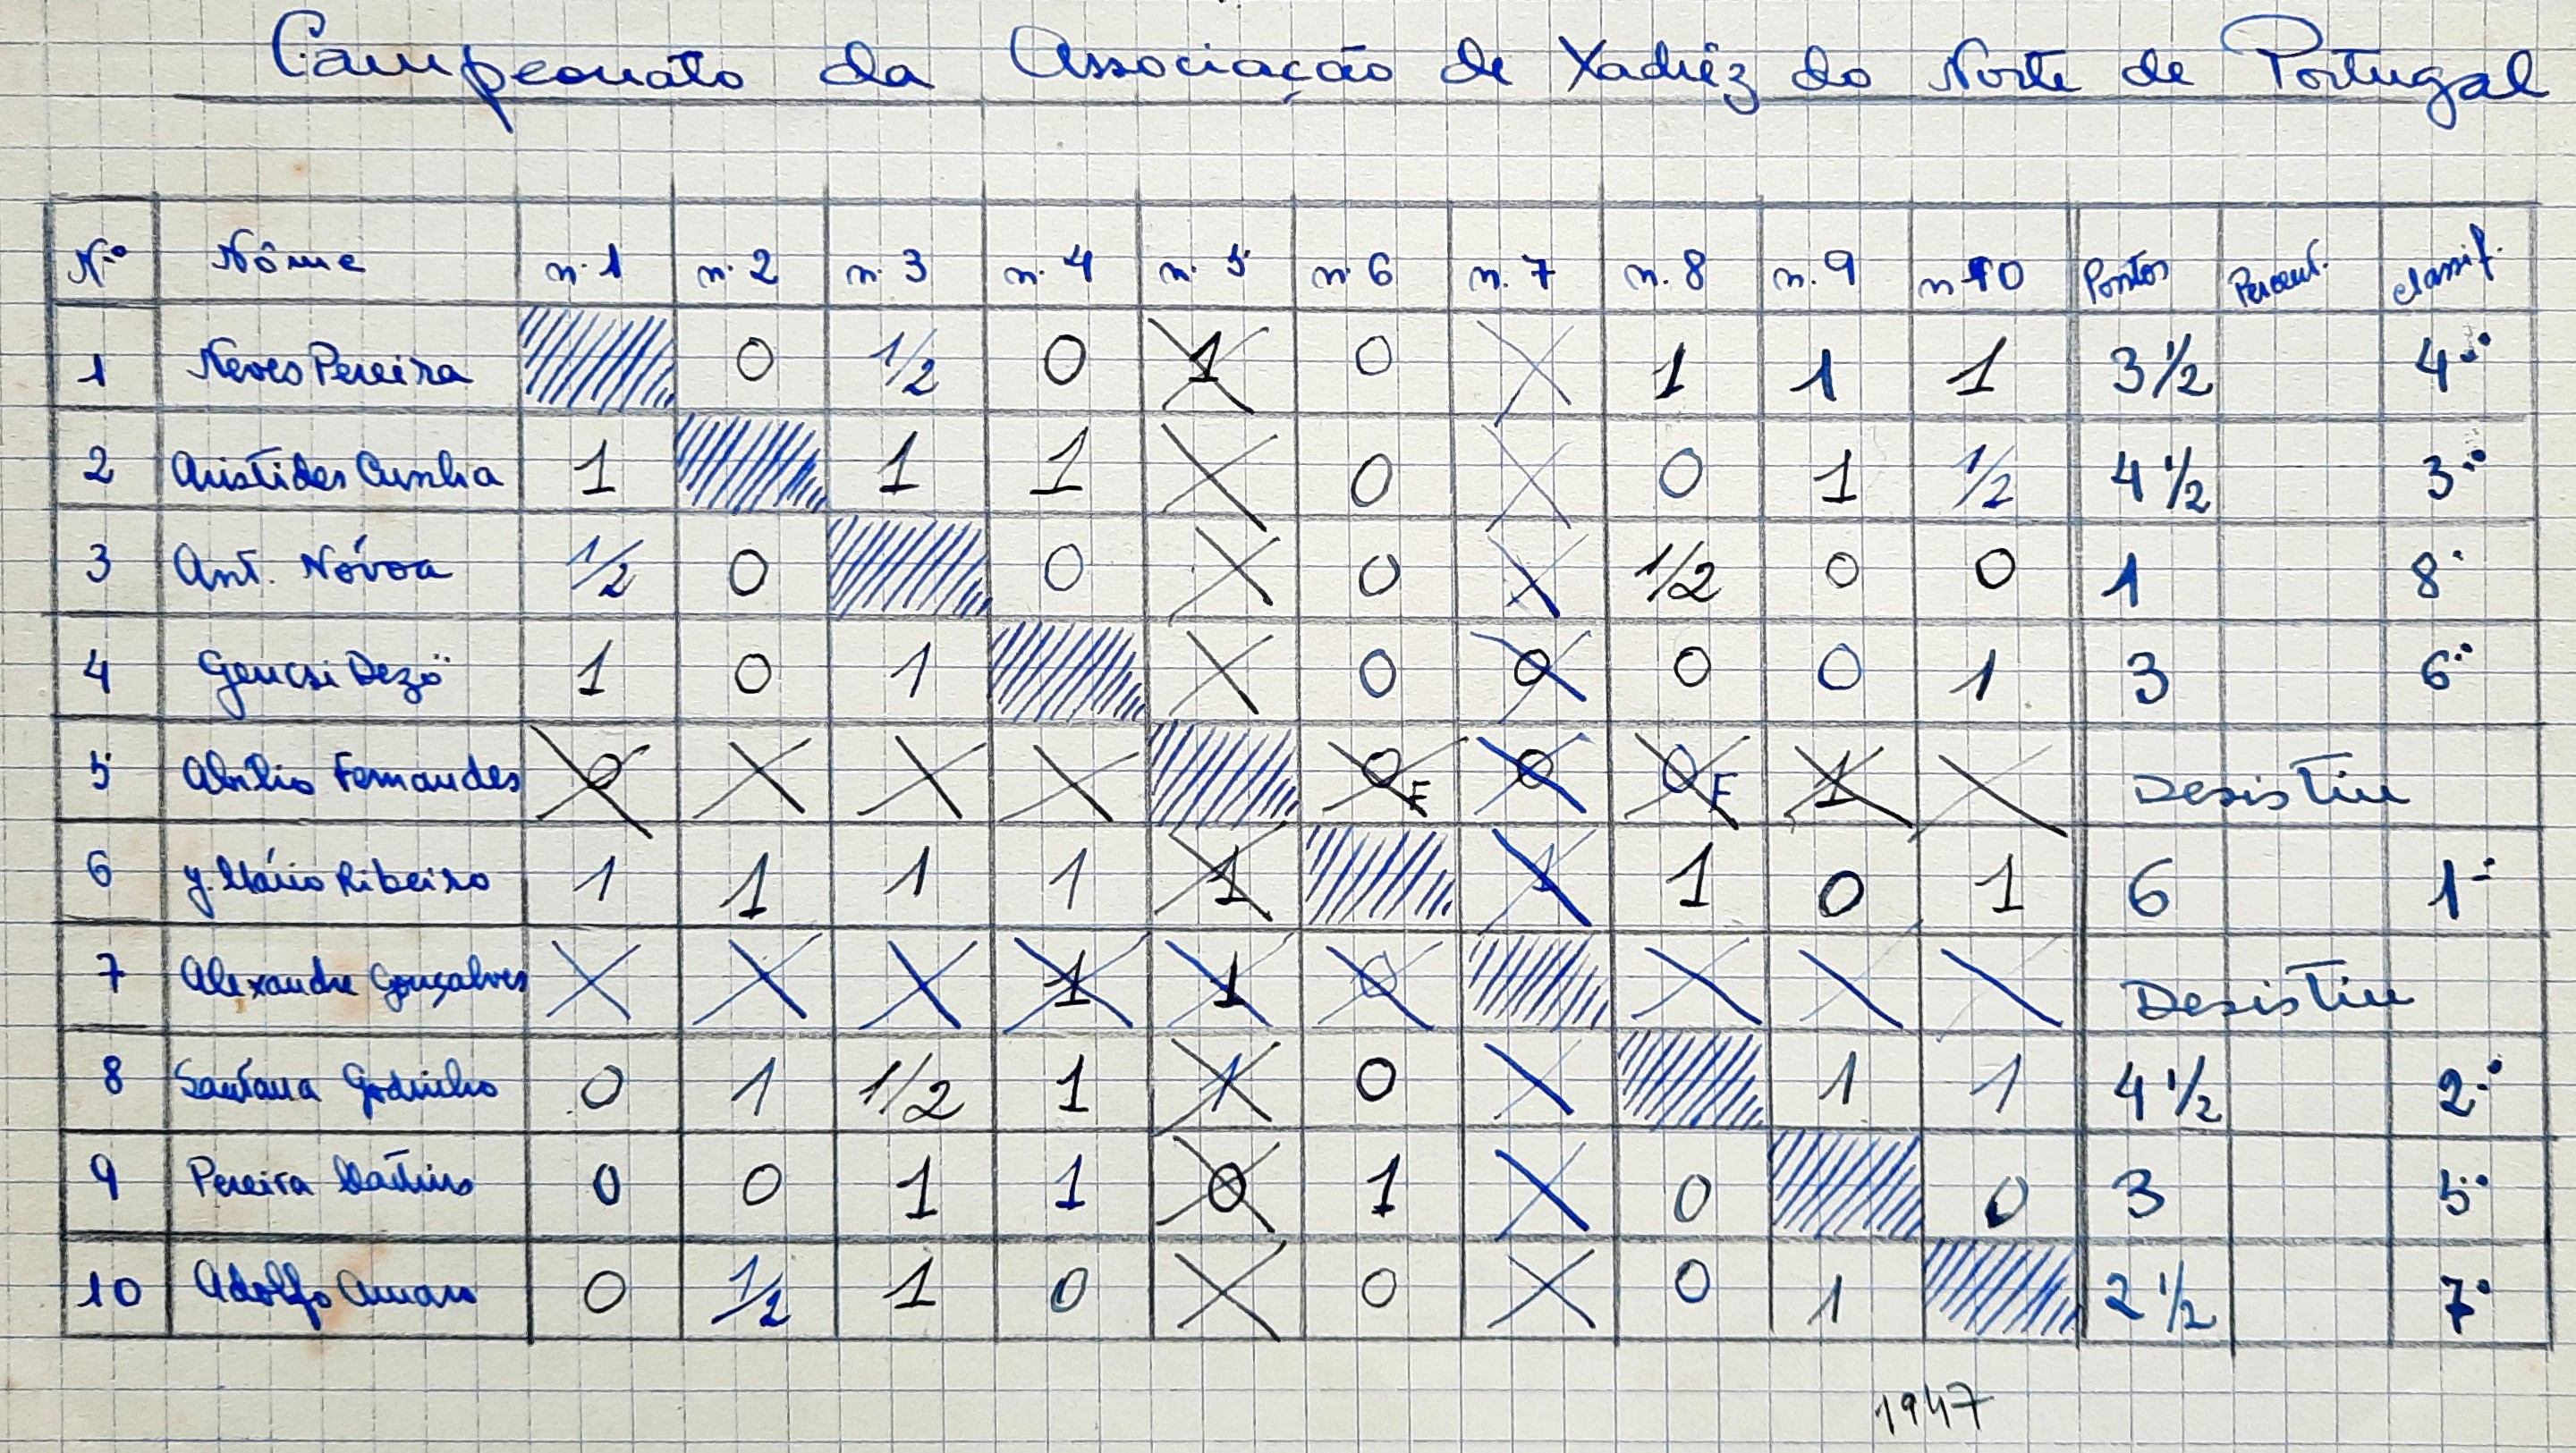 Campeonato da Associação de Xadrêz do Norte de Portugal
N.º Nôme n. 1 n. 2 n. 3 n. 4 n. 5 n. 6 n. 7 n. 8 n. 9 n 10 Pontos Percent. classif.
1 Neves Pereira 0 1/2 0 1 0 1 1 1 3 1/2 4.º
2 Aristides Cunha 1 1 1 0 0 1 1/2 4 1/2 3.º
3 Ant. Nóvoa 1/2 0 0 0 1/2 0 0 1 8º
4 Gencsi Dezö 1 0 1 0 0 0 0 1 3 6.º
5 Abílio Fernandes 0 0 F 0 0 F 1 Desistiu
6 J. Mário Ribeiro 1 1 1 1 1 1 1 0 1 6 1º
7 Alexandre Gonçalves 1 1 0 Desistiu
8 Santana Godinho 0 1 1/2 1 1 0 1 1 4 1/2 2.º
9 Pereira Martins 0 0 1 1 0 1 0 0 3 5.º
10 Adolfo Amaro 0 1/2 1 0 0 0 1 2 1/2 7º
1947